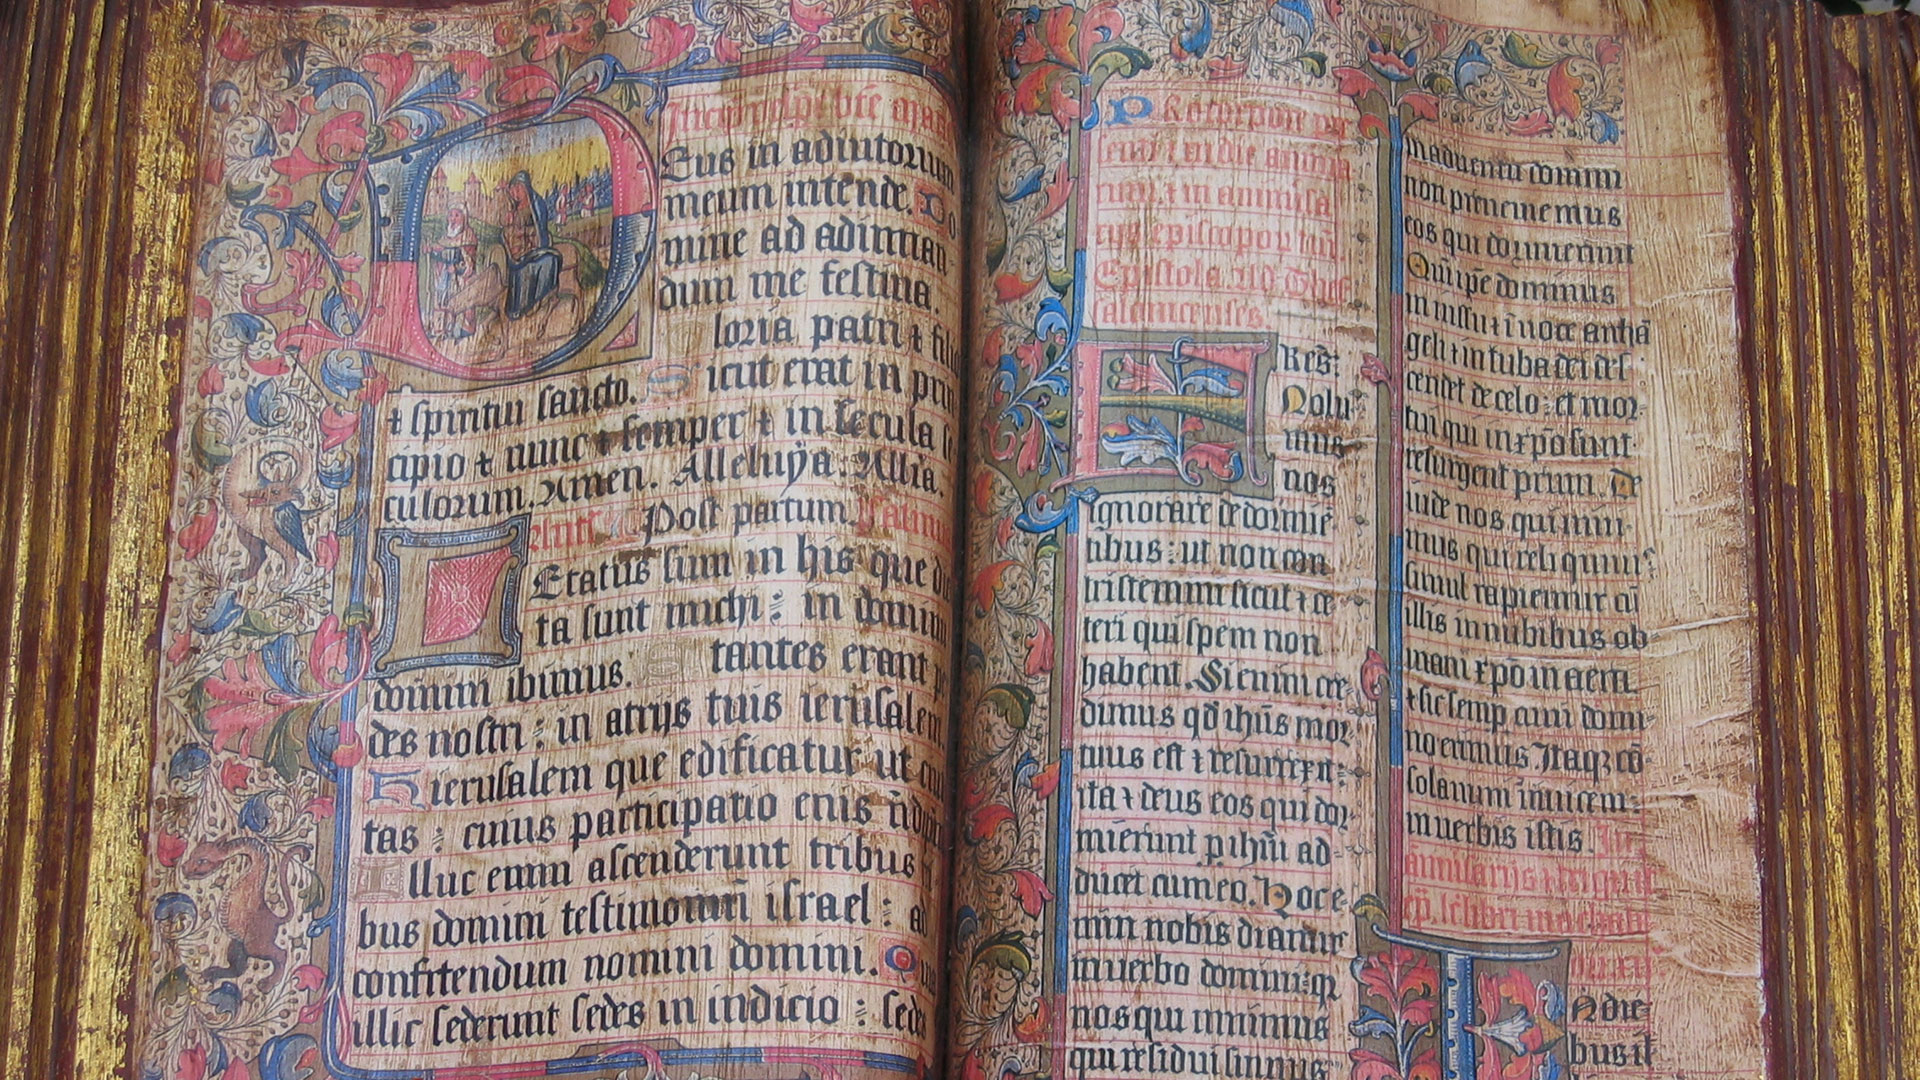 Eus in adiutorium
meum intende. Do
mine ad adiuuan
dum me festina.
loria patri ⁊ filio
⁊ spiritui sancto. Sicut erat in prin
cipio ⁊ nunc ⁊ semper ⁊ in secula se
culorum. Amen. Alleluÿa. Allia.
Post partum.
Etatus sum in his que dic
ta sunt michi : in domum
domini ibimus. Stantes erant pe
des nostri : in atrijs tuis ierusalem.
Hierusalem que edificatur ut ciui
tas : cuius participatio eius
Illuc enim ascenderunt tribus
bus domini testimonium israel : ad
confitendum nomini domini. Quia
illic sederunt sedes in iudicio : sedes
Pro
episcopo
Epistola. Ad Thes
salonicenses
Res:
Nolu
mus
nos
ignorare de dormiē
tibus : ut non con
tristemini sicut ⁊ ce
teri qui spem non
habent. Si enim cre
dimus qd ihūs mor
tuus est ⁊ resurrexit:
ita ⁊ deus eos qui dor
mierunt p ihm ad
ducet cum eo. Hoc e
nim nobis dicimus
in uerbo domini: q
nos qui uiuimus
qui residui sumus
in aduentu domini
non preueniemus
eos qui dormierunt
Qm ipe dominus
in iussu ⁊ ī uoce archā
geli ⁊ in tuba dei des
cendet de celo : et mor
tui qui in xpo sunt
resurgent primi. De
inde nos qui uiui
mus qui reliquimr
simul rapiemur cū
illis in nubibus ob
uiam xpo in aera
⁊ sic semp cum domi
no erimus. Itaqz cō
solamini inuicem
in uerbis istis. In
libri machab
N die
bus il